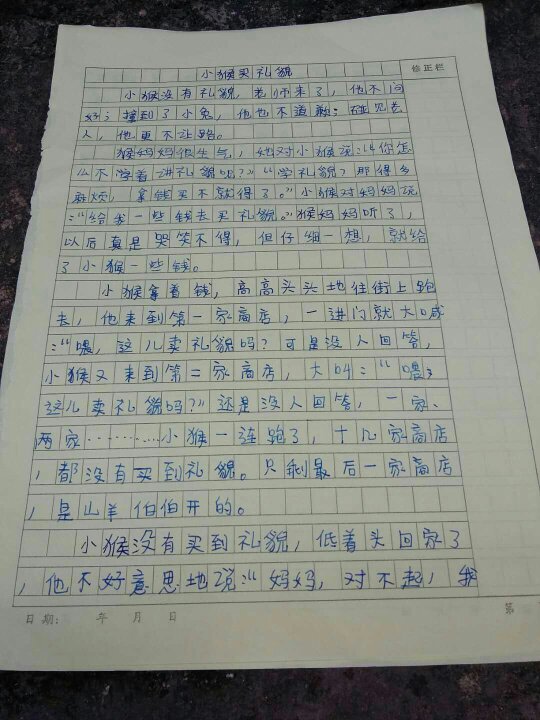 小猴买礼貌
修正栏
小猴没有礼貌，老师来了，他不问
好；撞到了小兔，他也不道歉；碰见老
人，他更不让路。
猴妈妈很生气，她对小猴说：“你怎
么不学着讲礼貌呢？”“学礼貌？那得多
麻烦，拿钱买不就得了。”小猴对妈妈说
：“给我一些钱去买礼貌。”猴妈妈听了，
以后真是哭笑不得，但仔细一想，就给
了小猴一些钱。
小猴拿着钱，高高头头地往街上跑
去，他来到第一家商店，一进门就大喊
：“喂，这儿卖礼貌吗？可是没人回答，
小猴又来到第二家商店，大叫：“喂；
这儿卖礼貌吗？”还是没人回答，一家、
两家…………小猴一连跑了，十几家商店
，都没有买到礼貌。只剩最后一家商店
，是山羊伯伯开的。
小猴没有买到礼貌，低着头回家了
，他不好意思地说：“妈妈，对不起，我
日期： 年 月 日
第